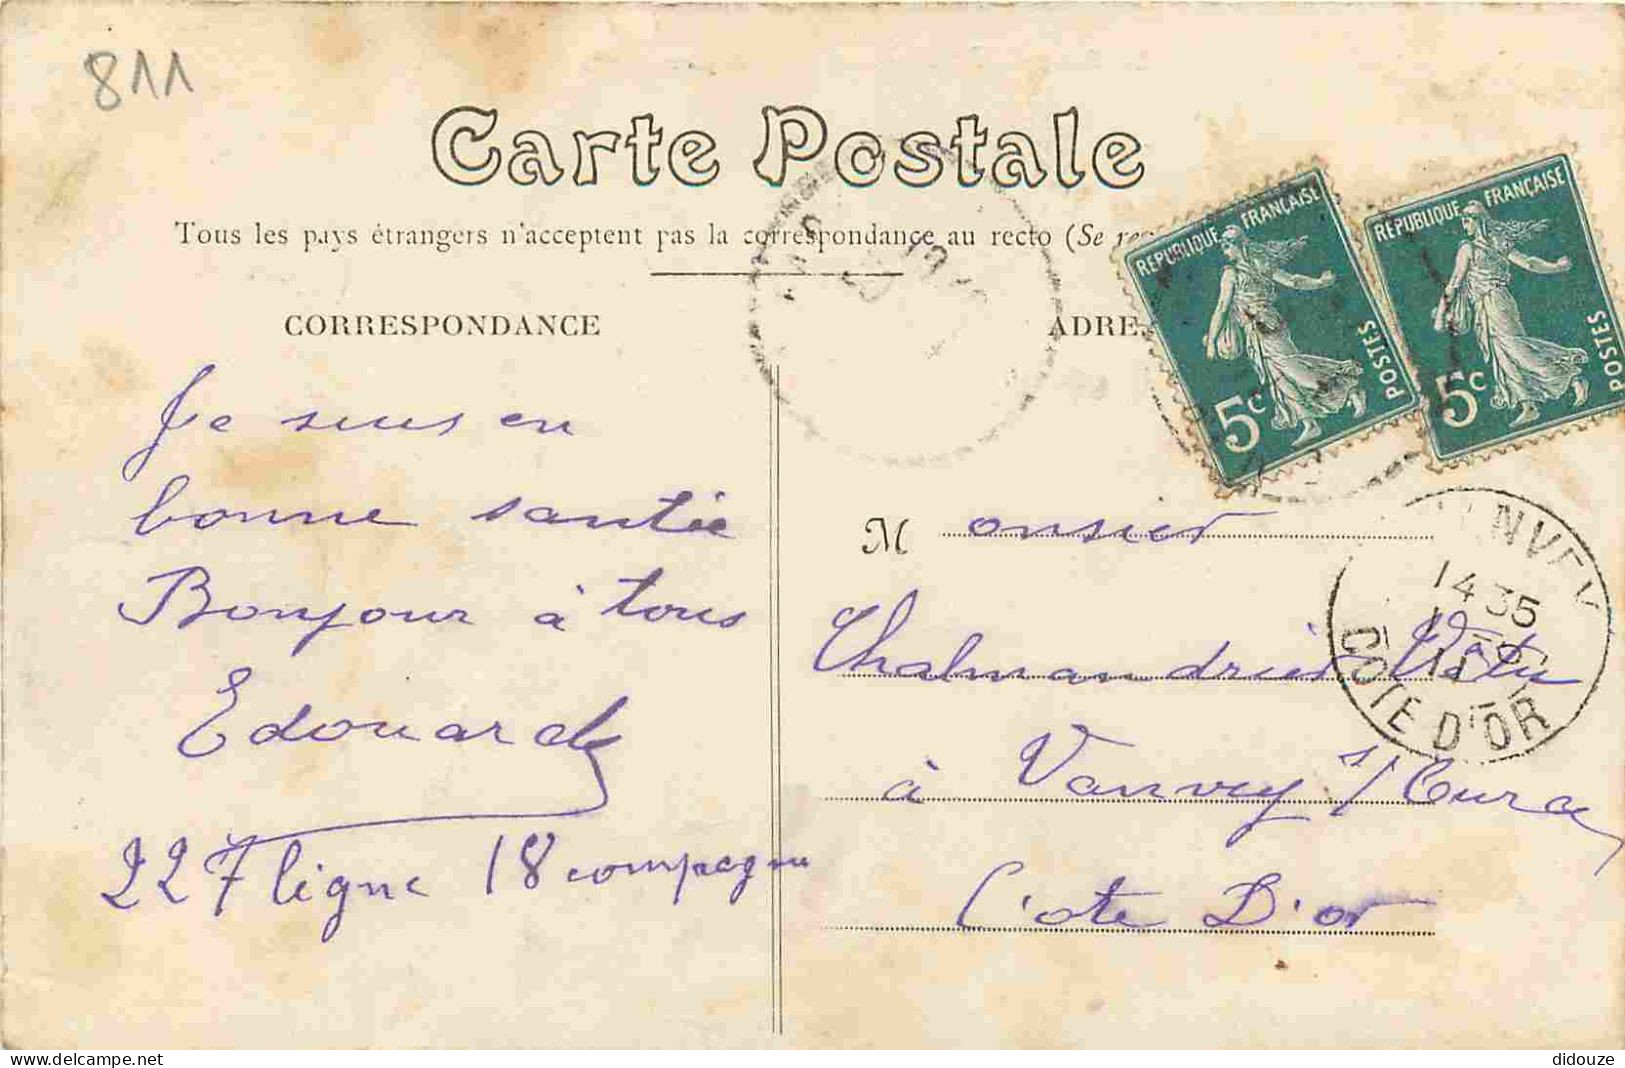 811
Carte Postale
Tous les pays étrangers n'acceptent pas la correspondance au recto (Se
CORRESPONDANCE
ADRE
RÉPUBLIQUE FRANÇAISE
POSTES
5c
RÉPUBLIQUE FRANÇAISE
POSTES
5c
Je suis en
bonne santée
Bonjour à tous
Edouard
227 ligne 18 compagnie
M onsier
à Vanvey s/ Ource
Côte D'or
VANVEY
14 35
COTE D'OR
delcampe.net
didouze